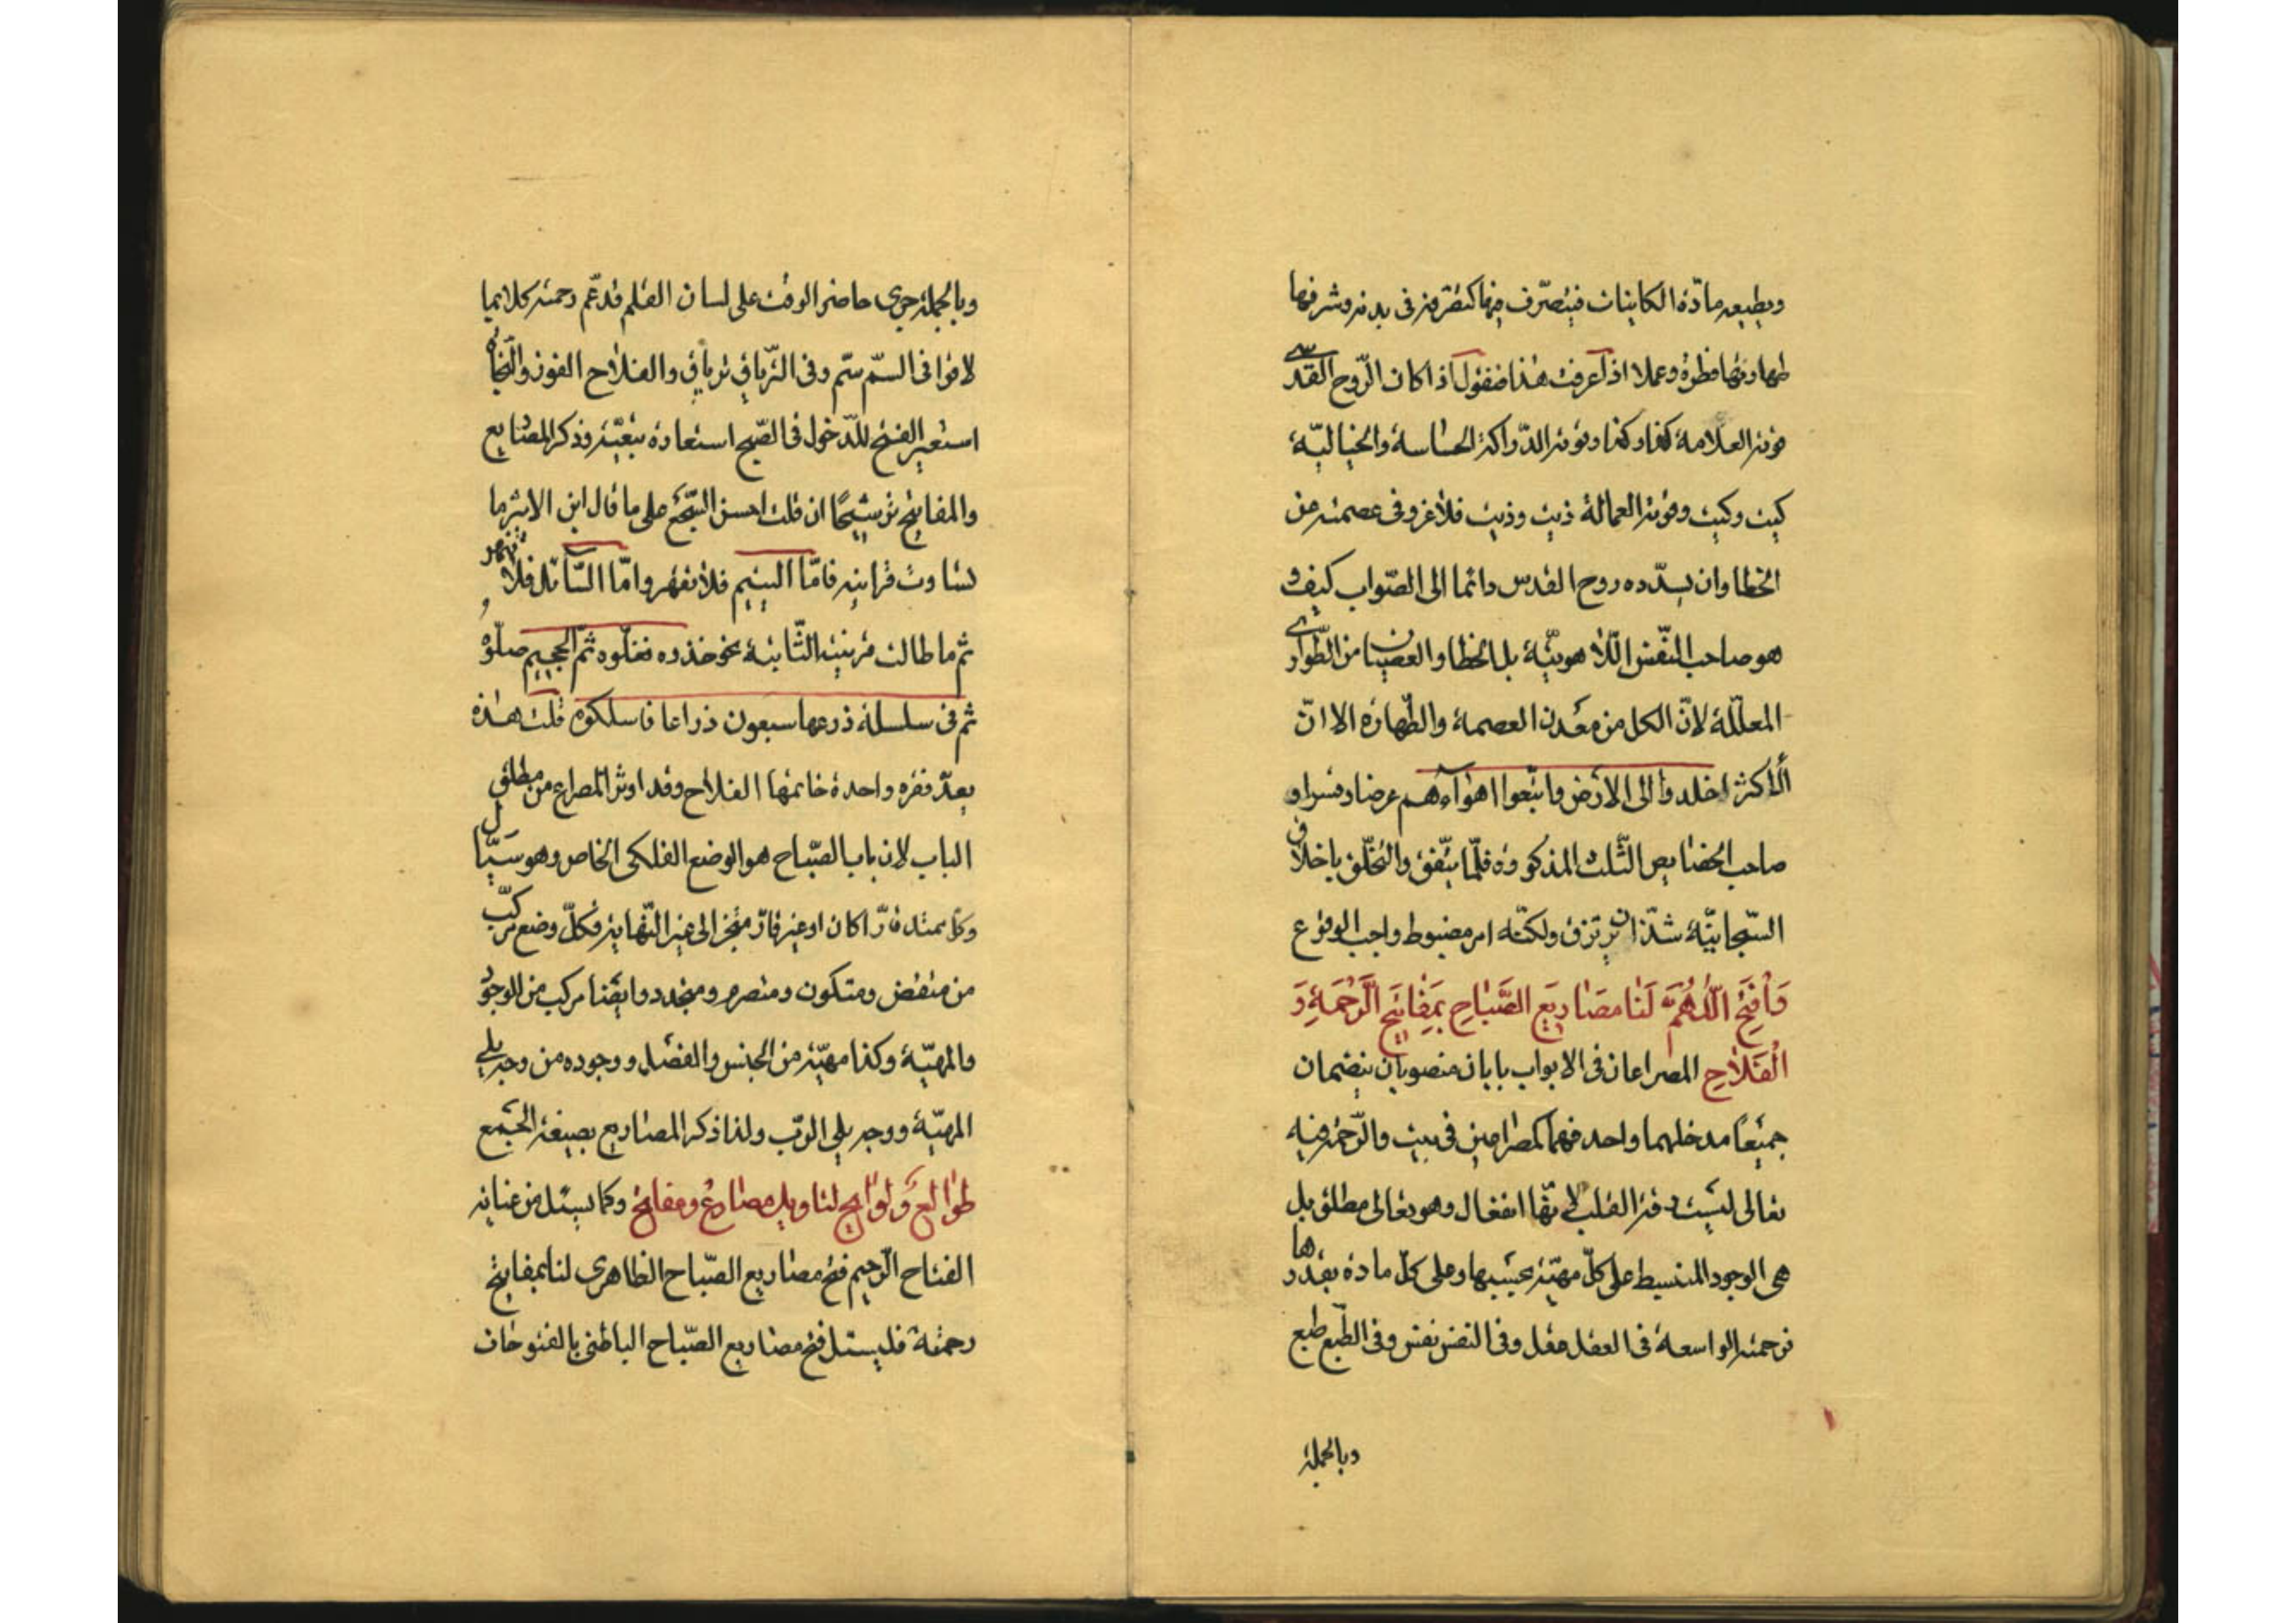 ويطيعه مادّة الكاينات فيتصرّف فيها كتصرفه فى بدنه وشرفها
طهارتها فطرة وعملا اذا عرفت هذا فنقول اذا كان الرّوح القدسى
قوته العلامة كذا وكذا وقوته الدّراكة الحساسة والخيالية
كيت وكيت وقوته العمالة ذيت وذيت فلا غرو فى عصمته من
الخطا وان يسدّده روح القدس دائما الى الصّواب كيف و
هو صاحب النّفس اللّاهوتيّة بل الخطا والعصيان من الطّوارى
المعلّلة لانّ الكل من معدن العصمة والطّهارة الا انّ
الاكثر اخلدوا الى الارض واتّبعوا اهواءهم عرضا وقسرا و
صاحب الخصايص الثّلث المذكورة قلّما يتّفق والتخلّق باخلاق
السّبحانيّة شذّ ان ترتزق ولكنّه امر مضبوط واجب الوقوع
وَافْتَحِ اللّٰهُمَّ لَنَا مَصَارِيعَ الصَّبَاحِ بِمَفَاتِيحِ الرَّحْمَةِ وَ
الْفَلَاحِ المصراعان فى الابواب بابان منصوبان ينضمان
جميعًا مدخلهما واحد فهما كمصراعين فى بيت والرّحمة فيه
تعالى ليست رقة القلب لانّها انفعال وهو تعالى مطلق بل
هى الوجود المنبسط على كلّ مهيّة بحسبها وعلى كلّ مادة بقدرها
فرحمته الواسعة فى العقل عقل وفى النفس نفس وفى الطّبع طبع
وبالجملة
وبالجملة جرى حاضر الوقت على لسان القلم قد عمّ رحمته كلا بما
لاقوا فى السّم سمّ وفى التّرياق ترياق والفلاح الفوز والنّجاة
استعير الفتح للدّخول فى الصّبح استعارة تبعيّة وذكر المصاريع
والمفاتيح ترشيحًا ان قلت احسن السّجع على ما قال ابن الاثير ما
تساوت قراينه فامّا اليتيم فلا تقهر وامّا السّائل فلا تنهر
ثم ما طالت قرينته الثّانية نحو خذوه فغلّوه ثمّ الجحيم صلّوه
ثم فى سلسلة ذرعها سبعون ذراعا فاسلكوه قلت هذه
يعدّ فقره واحدة خاتمها الفلاح وقد اوثر المصراع من مطلق
الباب لان باب الصّباح هو الوضع الفلكى الخاص وهو سيّال
وكل ممتد قارّا كان او غير قارّ منجز الى غير النّهاية فكلّ وضع مركّب
من منقض ومتكون ومنصرم ومتجدد وايضا مركب من الوجود
والمهيّة وكذا مهيّته من الجنس والفصل ووجوده من وجه يلى
المهيّة ووجه يلى الربّ ولذا ذكر المصاريع بصيغة الجمع
طوالع ولوايح لتاويل مصاريع ومفاتيح وكما يسئل من عناية
الفتاح الرّحيم فتح مصاريع الصّباح الظاهرى لنا بمفاتيح
رحمته فليسئل فتح مصاريع الصّباح الباطنى بالفتوحات